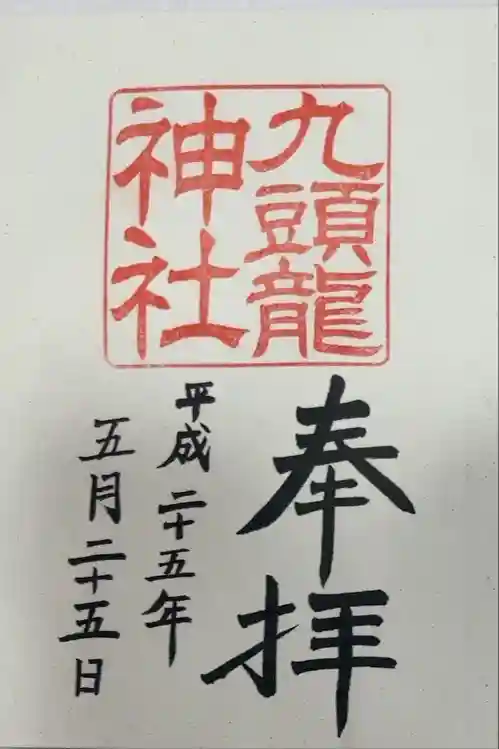 九頭龍
神社
奉拝
平成二十五年
五月二十五日